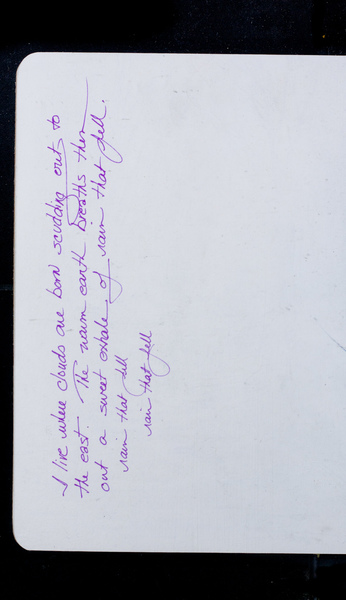 I live where clouds are born scudding out to
the east. The warm earth breaths them
out a sweet exhale of rain that fell.
rain that fell
rain that fell